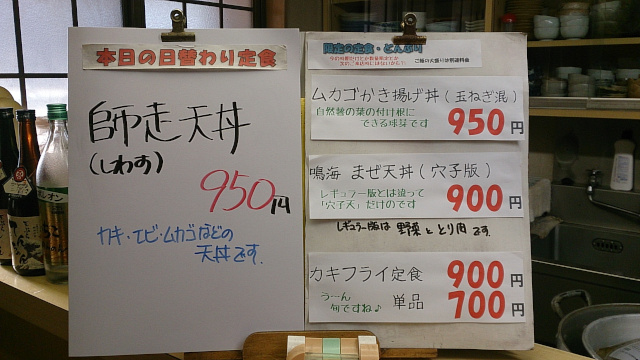 本日の日替わり定食
師走天丼
(しわす)
950円
カキ・エビ・ムカゴなどの
天丼です。
限定の定食・どんぶり
ご飯の大盛りは別途料金
ムカゴかき揚げ丼(玉ねぎ混)
自然薯の葉の付け根に
できる球芽です
950円
鳴海 まぜ天丼(穴子版)
レギュラー版とは違って
「穴子天」だけのです
900円
レギュラー版は 野菜ととり肉です。
カキフライ定食 900円
うーん
旬ですね♪
単品 700円